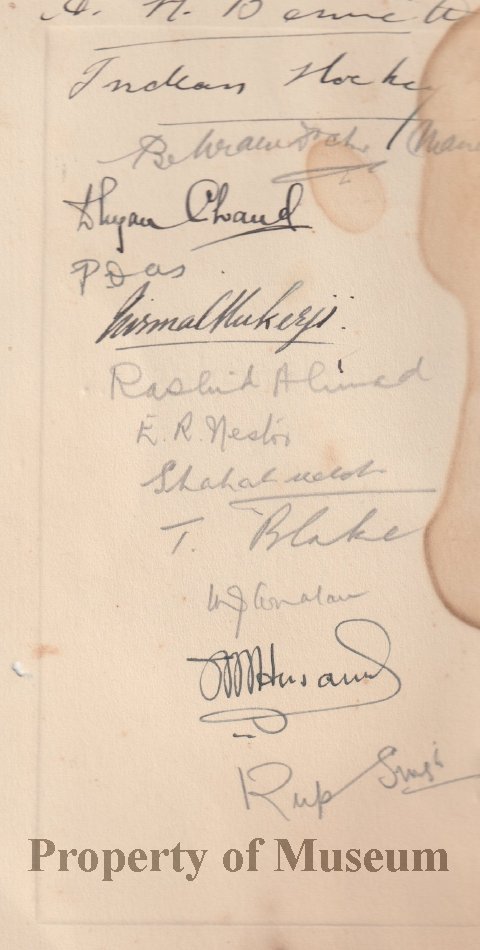 A. N. Bennett
Indian Hockey
Behram Doctor
Dhyan Chand
P Das
Nirmal Mukerji.
Rashid Ahmad
E. R. Nestor
Shahabuddin
T. Blake
M Husain
Rup Singh
Property of Museum